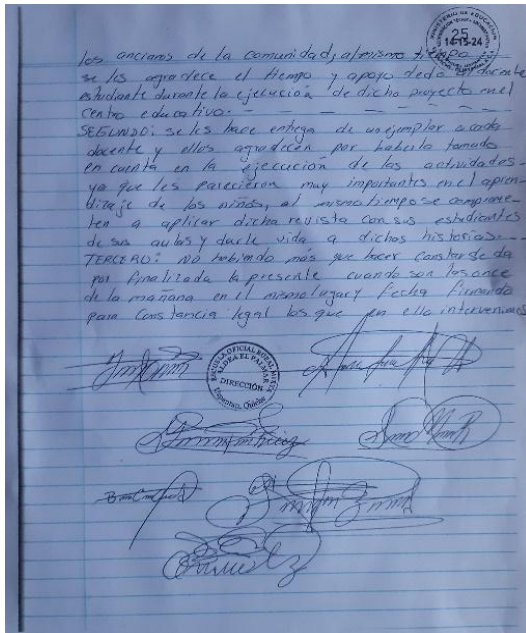 MINISTERIO DE EDUCACION
25
14-15-24
los ancianos de la comunidad, al mismo tiempo
se les agradece el tiempo y apoyo dado docente
estudiante durante la ejecución de dicho proyecto en el
centro educativo.- — — — — — —
SEGUNDO: se les hace entrega de un ejemplar a cada
docente y ellos agradecen por haberlo tomado
en cuenta en la ejecución de las actividades-
ya que les parecieron muy importantes en el apren-
dizaje de los niños, al mismo tiempo se comprome-
ten a aplicar dicha revista con sus estudiantes
de sus aulas y darle vida a dichas historias.---
TERCERO: No habiendo más que hacer constar se da
por finalizada la presente cuando son las once
de la mañana en el mismo lugar y fecha firmando
para constancia legal los que en ella intervenimos
ESCUELA OFICIAL RURAL MIXTA
ALDEA EL PALMAR
DIRECCIÓN
Uspantán, Quiché